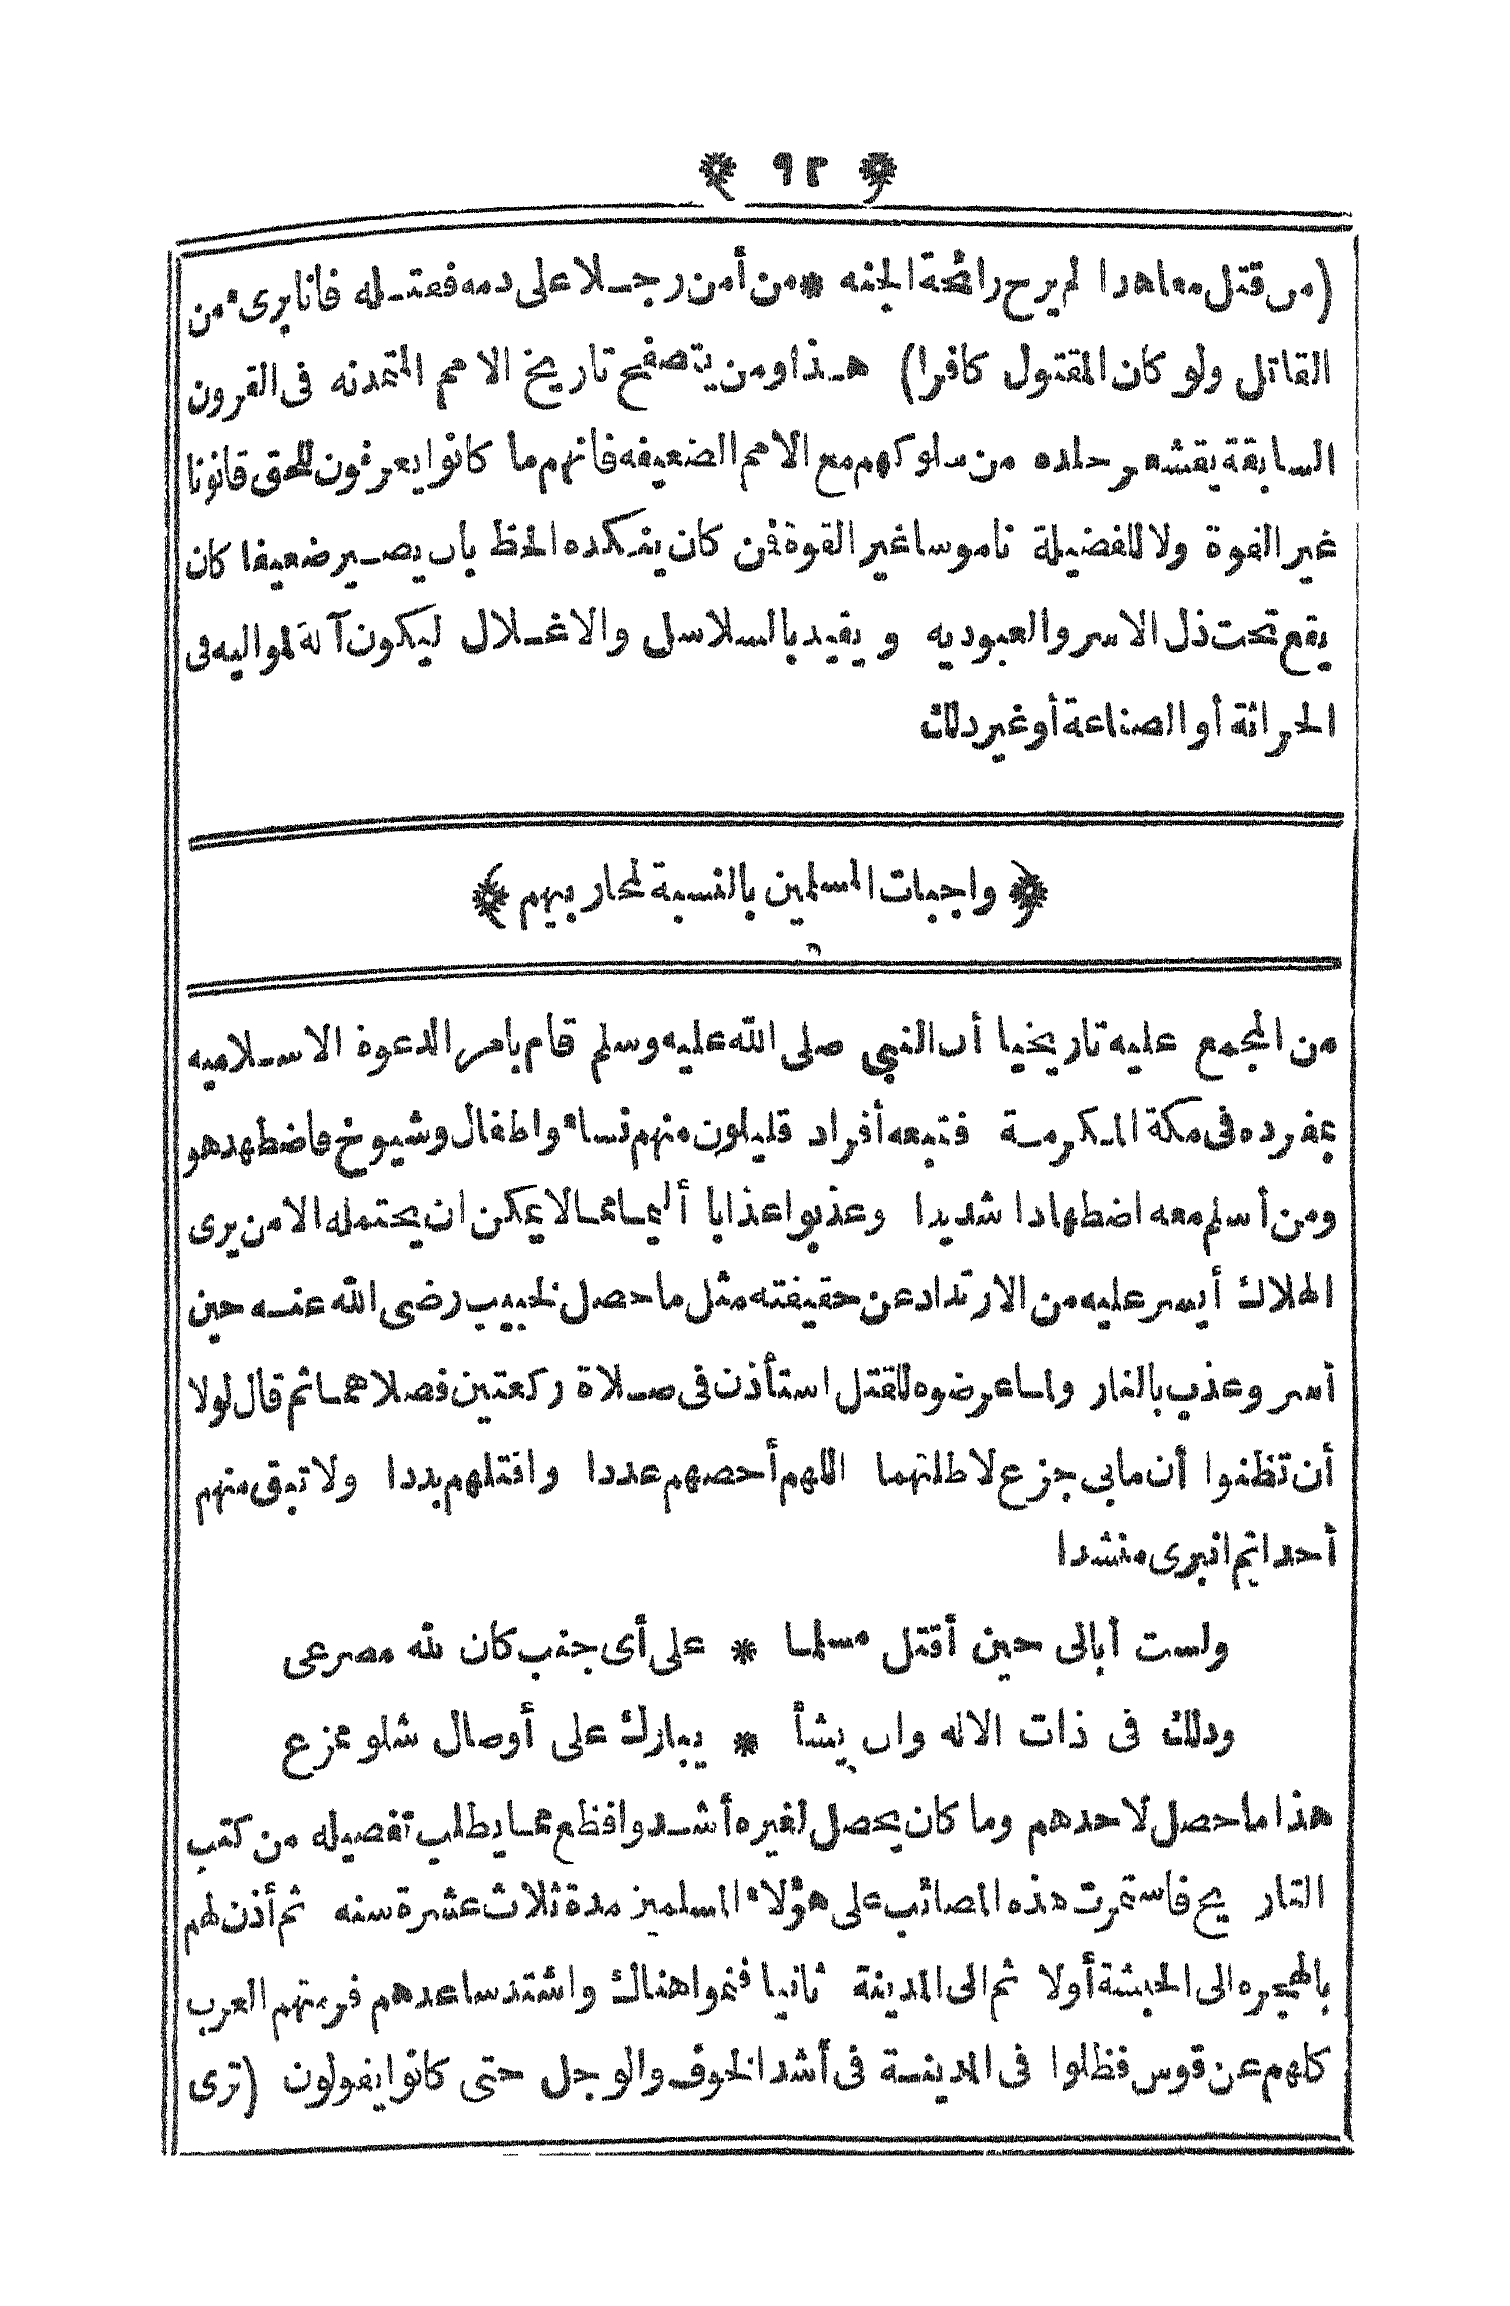 ﴿ ٩٢ ﴾
(من قتل معاهدا لم يرح رائحة الجنه * من أمن رجلا على دمه فقتله فانا برىء من
القاتل ولو كان المقتول كافرا) هذا ومن يتصفح تاريخ الامم المتمدنه فى القرون
السابقة يقشعر جلده من سلوكهم مع الامم الضعيفه فانهم ما كانوا يعرفون للحق قانونا
غير القوة ولا للفضيلة ناموسا غير القوة فمن كان ينكده الحظ بان يصير ضعيفا كان
يقع تحت ذل الاسر والعبوديه ويقيد بالسلاسل والاغلال ليكون آلة لمواليه فى
الحراثة أو الصناعة أو غير ذلك
﴿ واجبات المسلمين بالنسبة لمحاربيهم ﴾
من المجمع عليه تاريخيا أن النبي صلى الله عليه وسلم قام بامر الدعوة الاسلاميه
بمفرده فى مكة المكرمة فتبعه أفراد قليلون منهم نساء واطفال وشيوخ فاضطهد هو
ومن أسلم معه اضطهادا شديدا وعذبوا عذابا أليما مما لا يمكن ان يحتمله الا من يرى
الهلاك أيسر عليه من الارتداد عن حقيقته مثل ما حصل لخبيب رضى الله عنه حين
أسر وعذب بالنار ولما عرضوه للقتل استأذن فى صلاة ركعتين فصلاهما ثم قال لولا
أن تظنوا أن مابي جزع لاطلتهما اللهم أحصهم عددا واقتلهم بددا ولا تبق منهم
أحدا ثم انبرى منشدا
ولست أبالى حين أقتل مسلما * على أى جنب كان لله مصرعى
وذلك فى ذات الاله وان يشأ * يبارك على أوصال شلو ممزع
هذا ما حصل لاحدهم وما كان يحصل لغيره أشد وافظع مما يطلب تفصيله من كتب
التاريخ فاستمرت هذه المصائب على هؤلاء المسلمين مدة ثلاث عشرة سنه ثم أذن لهم
بالهجره الى الحبشة أولا ثم الى المدينة ثانيا فنموا هناك واشتد ساعدهم فرمتهم العرب
كلهم عن قوس فظلوا فى المدينة فى أشد الخوف والوجل حتى كانوا يقولون (ترى